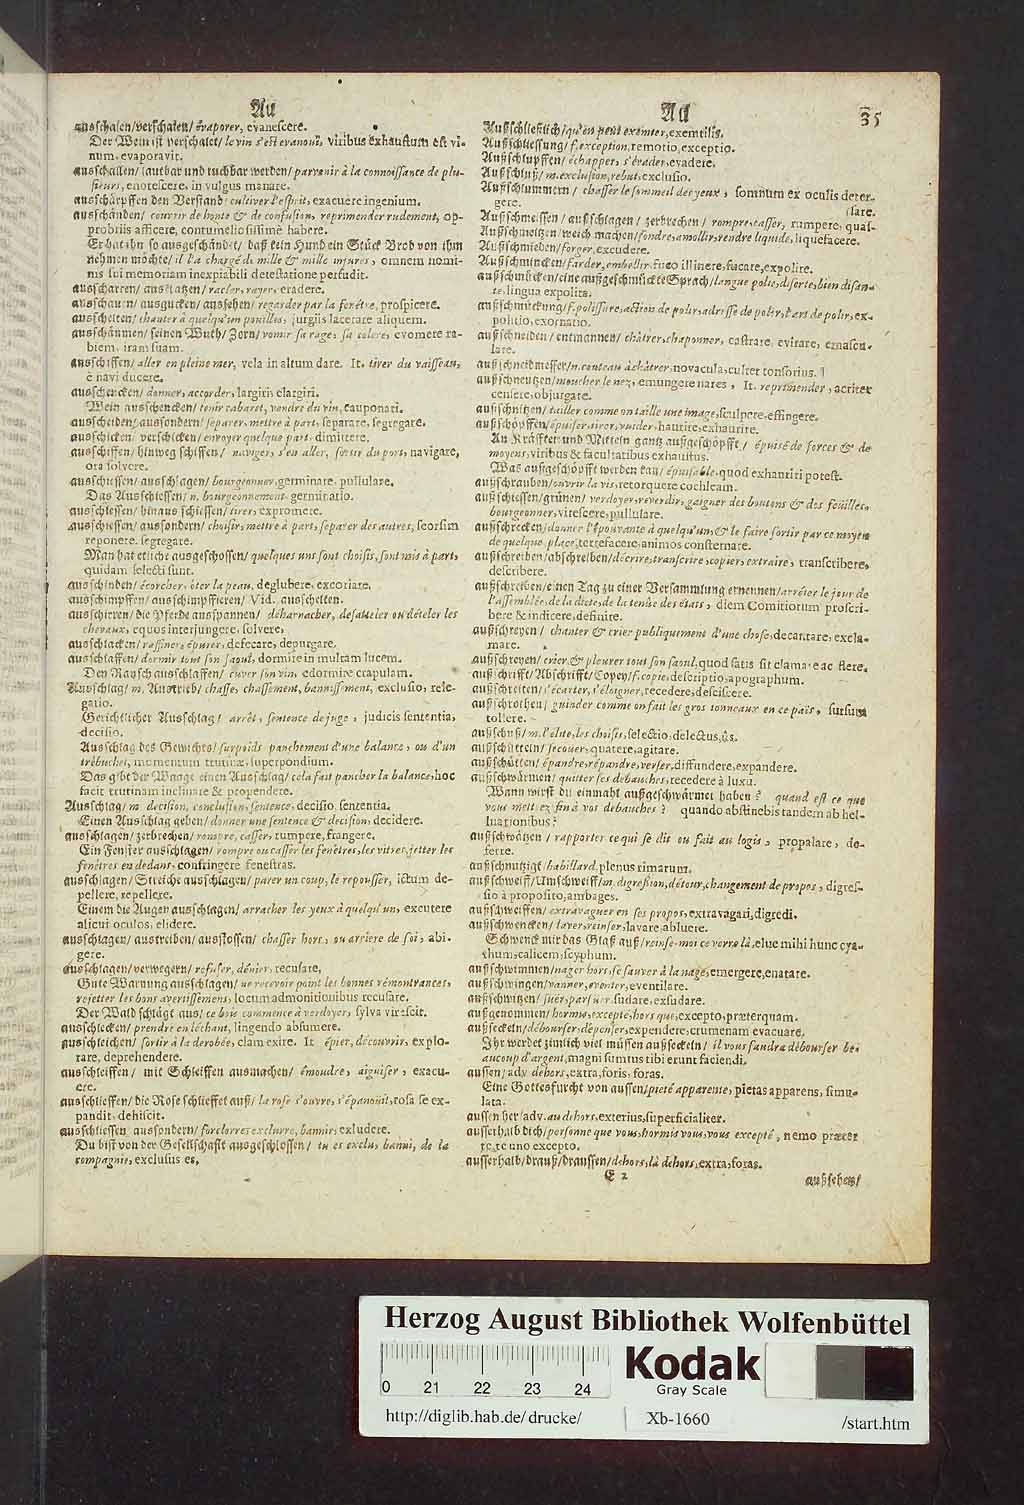 Au
ausschalen/verschalen/ évaporer, evanescere.
Der Wein ist verschalet/ le vin s'est evanoui, viribus exhaustum est vi-
num, evaporavit.
ausschallen/ lautbar und ruchbar werden/ parvenir à la connoissance de plu-
sieurs, enotescere, in vulgus manare.
ausschärpffen den Verstand/ cultiver l'esprit, exacuere ingenium.
ausschänden/ couvrir de honte & de confusion, reprimender rudement, op-
probriis afficere, contumeliosissimè habere.
Er hat ihn so ausgeschändet/ daß kein Hund ein Stück Brod von ihm
nehmen möchte/ il l'a chargé de mille & mille injures, omnem nomi-
nis sui memoriam inexpiabili detestatione perfudit.
ausscharren/ auskratzen/ racler, rayer, eradere.
ausschauen/ ausgucken/ aussehen/ regarder par la fenêtre, prospicere.
ausschelten/ chanter à quelqu'un pouilles, jurgiis lacerare aliquem.
ausschäumen/ seinen Wuth/ Zorn/ vomir sa rage, sa colere, evomere ra-
biem, iram suam.
ausschiffen/ aller en pleine mer, vela in altum dare. It. tirer du vaisseau,
è navi ducere.
ausschencken/ donner, accorder, largiri, elargiri.
Wein ausschencken/ tenir cabaret, vendre du vin, cauponari.
ausscheiden/ aussondern/ separer, mettre à part, separare, segregare.
ausschicken/ verschicken/ envoyer quelque part, dimittere.
ausschiffen/ hinweg schiffen/ naviger, s'en aller, sortir du port, navigare,
ora solvere.
ausschiessen/ ausschlagen/ bourgeonner, germinare, pullulare.
Das Ausschiessen/ n. bourgeonnement, germinatio.
ausschiessen/ hinaus schiessen/ tirer, expromere.
ausschiessen/ aussondern/ choisir, mettre à part, separer des autres, seorsim
reponere, segregare.
Man hat etliche ausgeschossen/ quelques uns sont choisis, sont mis à part,
quidam selecti sunt.
ausschinden/ écorcher, ôter la peau, deglubere, excoriare.
ausschimpffen/ ausschimpffieren/ Vid. ausschelten.
ausschirren/ die Pferde ausspannen/ déharnacher, desatteler ou dételer les
chevaux, equos interjungere, solvere,
ausschlacken/ raffiner, épurer, defecare, depurgare.
ausschlaffen/ dormir tout son saoul, dormire in multam lucem.
Den Rausch ausschlaffen/ cuver son vin, edormire crapulam.
Ausschlag/ m. Austrieb/ chasse, chassement, bannissement, exclusio, rele-
gatio.
Gerichtlicher Ausschlag/ arrêt, sentence de juge, judicis sententia,
decisio.
Ausschlag des Gewichts/ surpoids panchement d'une balance, ou d'un
trébuchet, momentum trutinæ, superpondium.
Das gibt der Waage einen Ausschlag/ cela fait pancher la balance, hoc
facit trutinam inclinare & propendere.
Ausschlag/ m. decision, conclusion, sentence, decisio, sententia.
Einen Ausschlag geben/ donner une sentence & decision, decidere.
ausschlagen/ zerbrechen/ rompre, casser, rumpere, frangere.
Ein Fenster ausschlagen/ rompre ou casser les fenêtres, les vitres, jetter les
fenêtres en dedans, confringere fenestras.
ausschlagen/ Streiche ausschlagen/ parer un coup, le repousser, ictum de-
pellere, repellere.
Einem die Augen ausschlagen/ arracher les yeux à quelqu'un, excutere
alicui oculos, elidere.
ausschlagen/ austreiben/ ausstossen/ chasser hors, ou arriere de soi, abi-
gere.
ausschlagen/ verwegern/ refuser, dénier, recusare,
Gute Warnung ausschlagen/ ne recevoir point les bonnes rémontrances,
rejetter les bons avertissemens, locum admonitionibus recusare.
Der Wald schlägt aus/ ce bois commence à verdoyer, sylva virescit.
ausschlecken/ prendre en léchant, lingendo absumere.
ausschleichen/ sortir à la derobée, clam exire. It. épier, découvrir, explo-
rare, deprehendere.
ausschleiffen/ mit Schleiffen ausmachen/ émoudre, aiguiser, exacu-
ere.
ausschlieffen/ die Rose schlieffet auß/ la rose s'ouvre, s'épanouit, rosa se ex-
pandit, dehiscit.
ausschliessen/ aussondern/ forclorre, exclurre, bannir, exludere.
Du bist von der Gesellschafft ausgeschlossen/ tu es exclu, banni, de la
compagnie, exclusus es,
Au 35
Außschließlich/ qu'on peut exemter, exemtilis.
Außschliessung/ f. exception, remotio, exceptio.
Außschlupffen/ échapper, s'évader, evadere.
Außschluß/ m. exclusion, rebut, exclusio.
Außschlummern/ chasser le sommeil des yeux, somnum ex oculis deter-
gere.
Außschmeissen/ außschlagen/ zerbrechen/ rompre, casser, rumpere, quas- sare.
Außschmeltzen/ weich machen/ fondre, amollir, rendre liquide, liquefacere.
Außschmieden/ forger, excudere.
Außschmincken/ farder, embellir, fuco illinere, fucare, expolire.
außschmücken/ eine außgeschmückte Sprach/ langue polie, diserte, bien disan-
te, lingua expolita.
außschmückung/ f. polissure, action de polir, adresse de polir, l'art de polir, ex-
politio, exornatio.
außschneiden/ entmannen/ châtrer, chaponner, castrare, evirare, emascu-
lare.
außschneidmesser/ n. couteau à châtrer, novacula, culter tonsorius.
außschneutzen/ moucher le nez, emungere nares, It. reprimender, acriter
censere, objurgare.
außschnitzen/ tailler comme on taille une image, sculpere, effingere.
außschöpffen/ épuiser, tirer, vuider, haurire, exhaurire.
An Kräfften und Mitteln gantz außgeschöpfft/ épuisé de forces & de
moyens, viribus & facultatibus exhaustus.
Was außgeschöpfft werden kan/ épuisable, quod exhauriri potest.
außschrauben/ ouvrir la vis, retorquere cochleam.
außschiessen/ grünen/ verdoyer, reverdir, gaigner des boutons & des feuilles,
bourgeonner, virescere, pullulare.
außschrecken/ donner l'épouvante à quelqu'un, & le faire sortir par ce moyen
de quelque place, terrefacere, animos consternare.
außschreiben/ abschreiben/ décrire, transcrire, copier, extraire, transcribere,
describere.
außschreiben/ einen Tag zu einer Versammlung ernennen/ arrêter le jour de
l'assemblée, de la diete, de la tenüe des états, diem Comitiorum proscri-
bere & indicere, definire.
außschreyen/ chanter & crier publiquement d'une chose, decantare, excla-
mare.
außschreyen/ crier & pleurer tout son saoul, quod satis sit clamare ac flere.
außschrifft/ Abschrifft/ Copey/ f. copie, descriptio, apographum.
außschreiten/ s'écarter, s'éloigner, recedere, desciscere.
außschrothen/ guinder comme on fait les gros tonneaux en ce païs, sursum
tollere.
außschuß/ m. l'élite, les choisis, selectio, delectus, ûs.
außschütteln/ secouer, quatere, agitare.
außschütten/ épandre, répandre, verser, diffundere, expandere.
außschwärmen/ quitter ses debauches, recedere à luxu.
Wann wirst du einmahl außgeschwärmet haben? quand est ce que
vous mettrez fin à vos debauches? quando abstinebis tandem ab hel-
luationibus?
außschwätzen/ rapporter ce qui se dit ou fait au logis, propalare, de-
ferre.
außschwätzigt/ habillard, plenus rimarum.
außschweiff/ Umschweiff/ m. digression, détour, changement de propos, digres-
sio à proposito, ambages.
außschweiffen/ extravaguer en ses propos, extravagari, digredi.
außschwencken/ laver, reinser, lavare, abluere.
Schwenck mir das Glaß auß/ reinse-moi ce verre là, elue mihi hunc cya-
thum, calicem, scyphum.
außschwimmen/ nager hors, se sauver à la nage, emergere, enatare.
außschwingen/ vanner, eventer, eventilare.
außschwitzen/ suër, par suer, sudare, exsudare.
außgenommen/ hormis, excepté, hors que, excepto, præterquam.
außseckeln/ débourser, dépenser, expendere, crumenam evacuare.
Ihr werdet zimlich viel müssen außseckeln/ il vous faudra débourser be-
aucoup d'argent, magni sumtus tibi erunt faciendi.
aussen/ adv. dehors, extra, foris, foras.
Eine Gottesfurcht von aussen/ pieté apparente, pietas apparens, simu-
lata.
aussen her/ adv. au dehors, exterius, superficialiter.
ausserhalb dich/ personne que vous, hormis vous, vous excepté, nemo præter
te, te uno excepto.
ausserhalb/ drauß/ draussen/ dehors, là dehors, extra, foras.
E 2
außsehen/
Herzog August Bibliothek Wolfenbüttel
0 21 22 23 24
Kodak
Gray Scale
http://diglib.hab.de/drucke/ Xb-1660 /start.htm